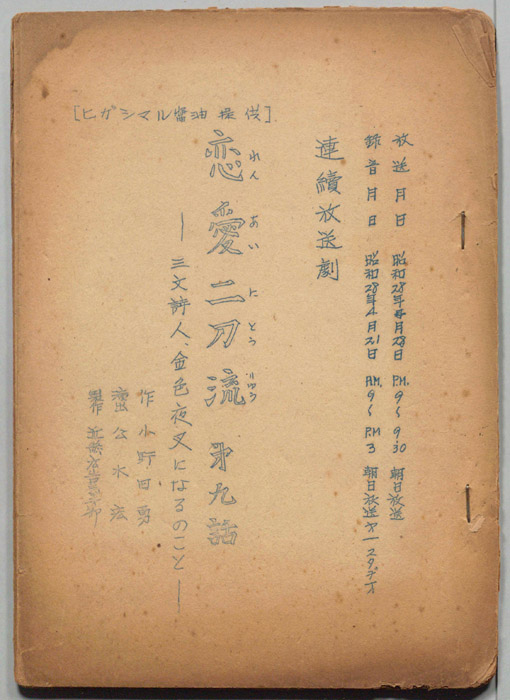 放送月日 昭和28年4月28日 P.M. 9〜9.30 朝日放送
録音月日 昭和28年4月21日 A.M. 9〜P.M 3 朝日放送オ一スタヂオ
連續放送劇
[ヒガシマル醬油提供]
恋愛二刀流 第九話
れん あい に とう りゅう
―三文詩人、金色夜叉になるのこと―
作 小野田勇
演出 公水宏
製作